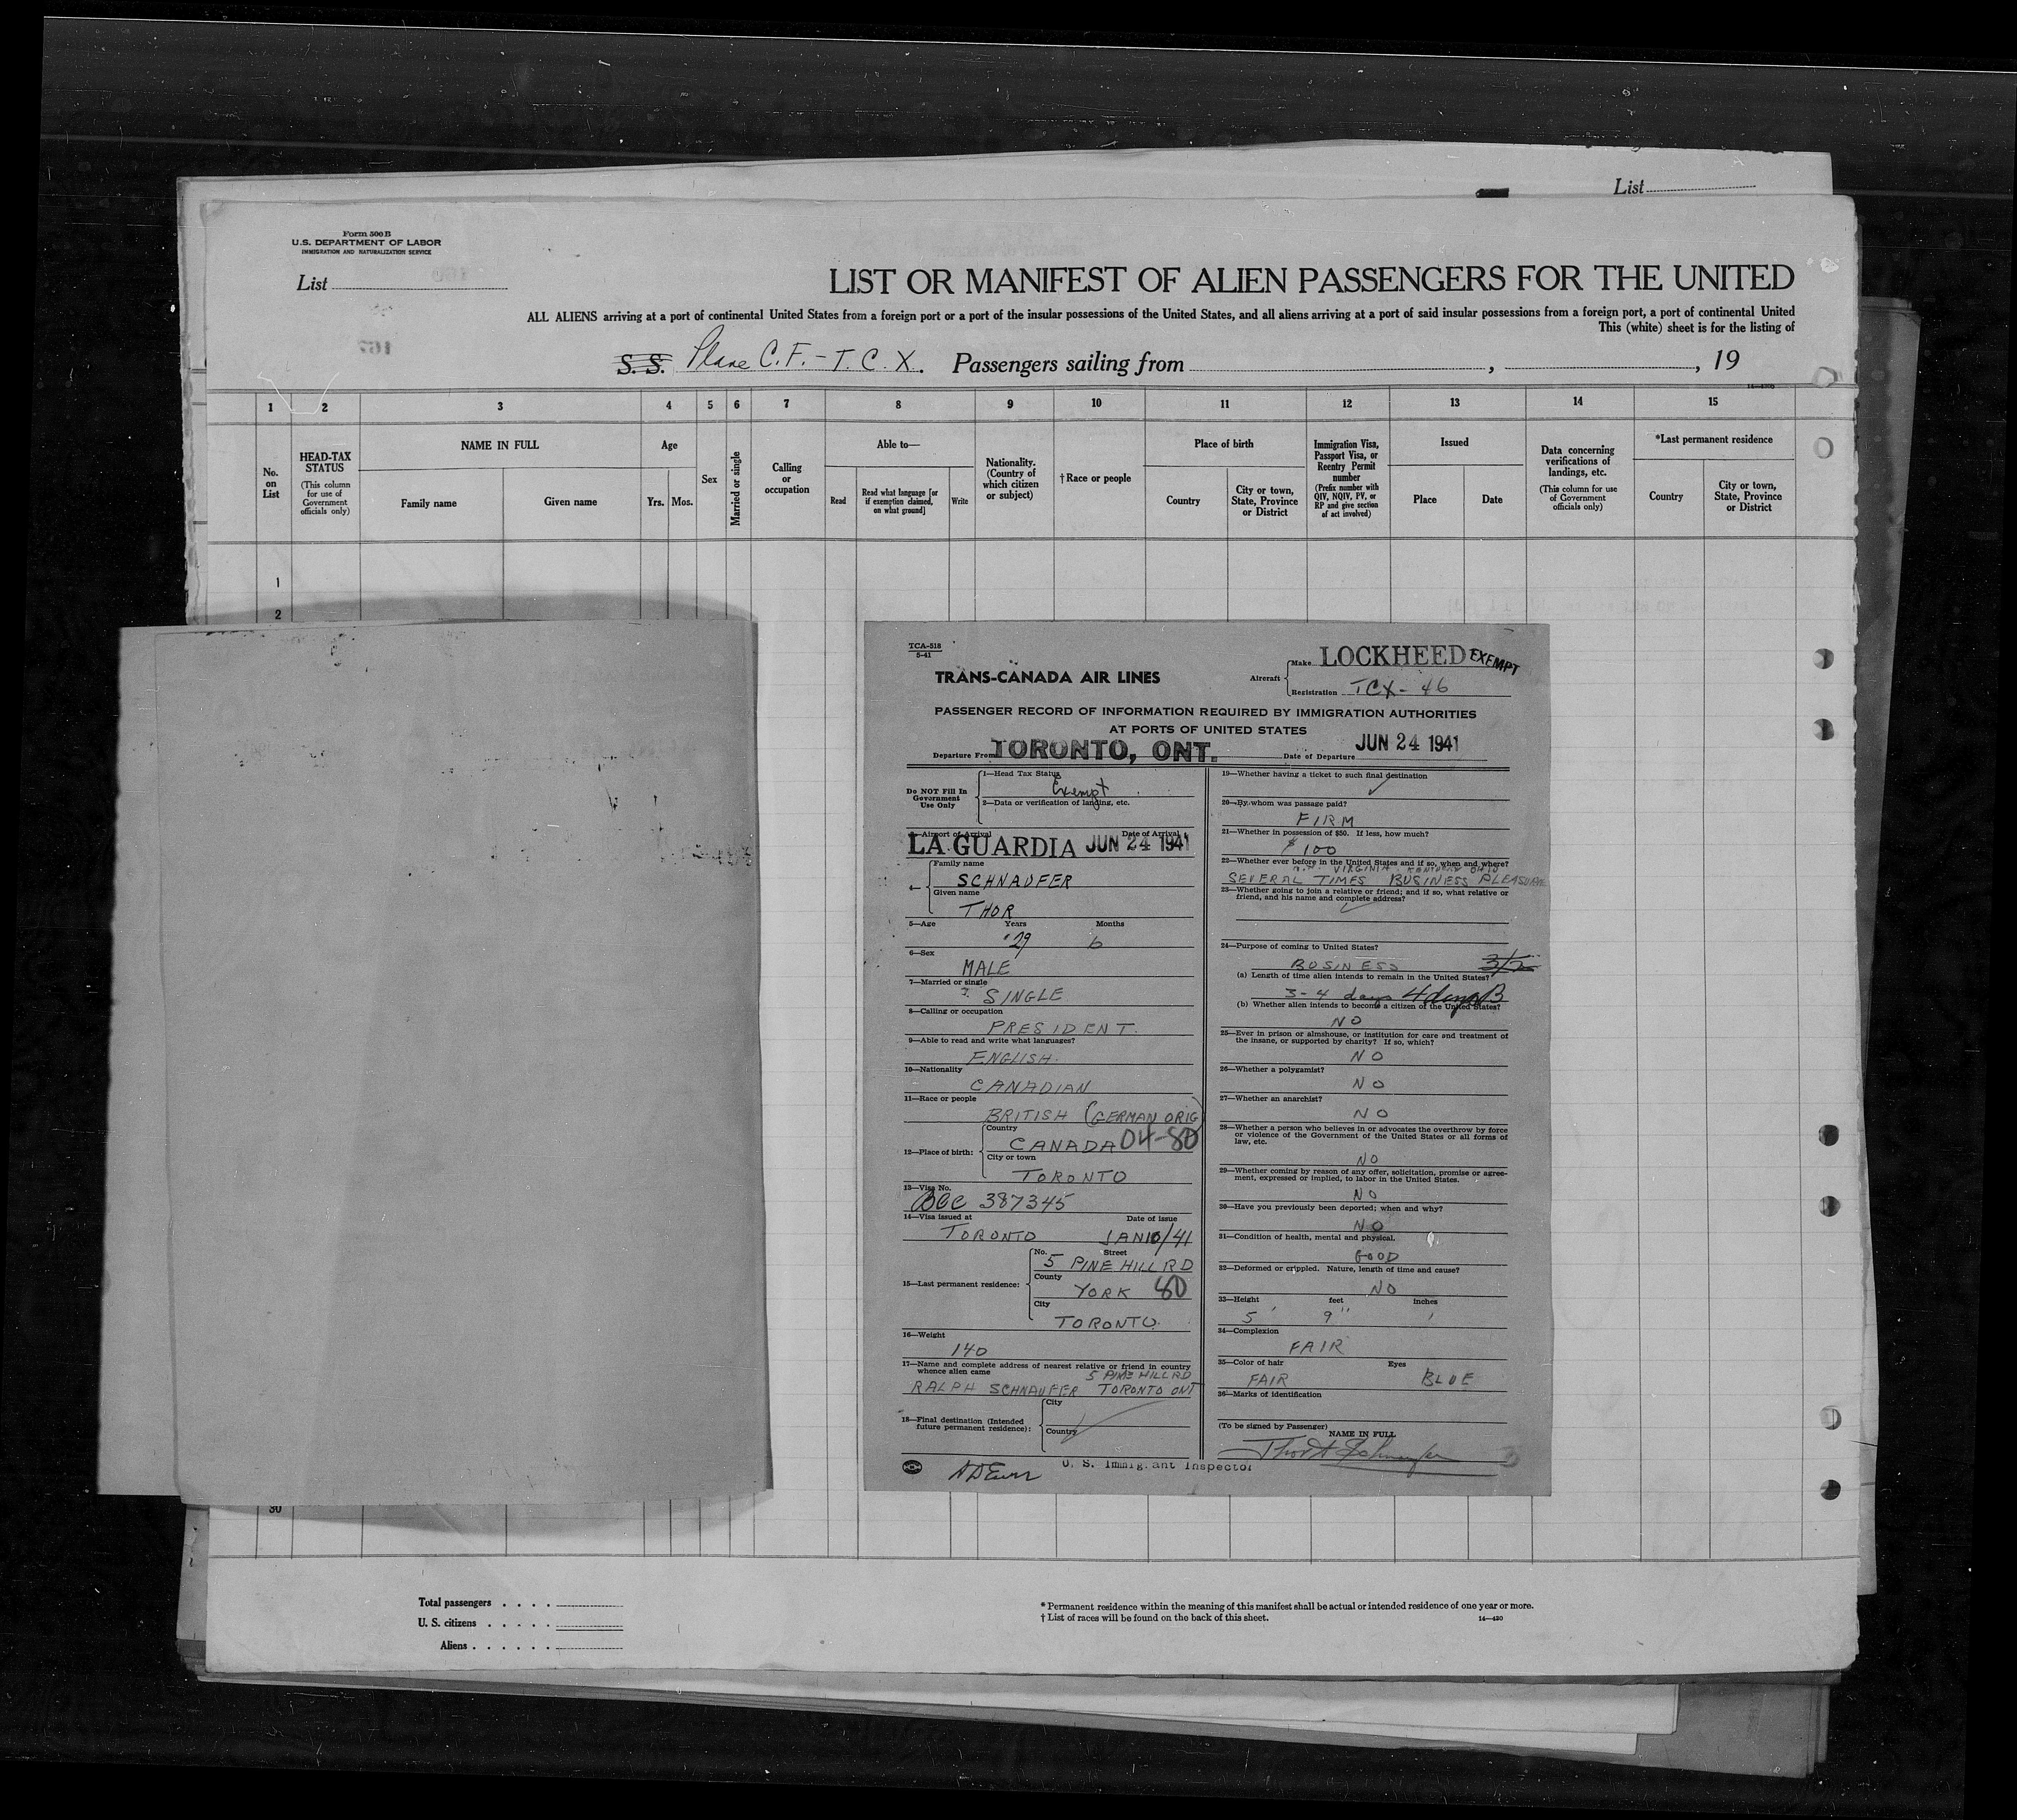 List
Form 500 B
U.S. DEPARTMENT OF LABOR
IMMIGRATION AND NATURALIZATION SERVICE
List
LIST OR MANIFEST OF ALIEN PASSENGERS FOR THE UNITED
ALL ALIENS arriving at a port of continental United States from a foreign port or a port of the insular possessions of the United States, and all aliens arriving at a port of said insular possessions from a foreign port, a port of continental United
This (white) sheet is for the listing of
S. S. Plane C.F.-T.C.X. Passengers sailing from , , 19
1 2 3 4 5 6 7 8 9 10 11 12 13 14 15
No. on List
HEAD-TAX STATUS
(This column for use of Government officials only)
NAME IN FULL
Family name Given name
Age
Yrs. Mos.
Sex
Married or single
Calling or occupation
Able to—
Read Read what language [or if exemption claimed, on what ground] Write
Nationality. (Country of which citizen or subject)
†Race or people
Place of birth
Country City or town, State, Province or District
Immigration Visa, Passport Visa, or Reentry Permit number
(Prefix number with QIV, NQIV, PV, or RP and give section of act involved)
Issued
Place Date
Data concerning verifications of landings, etc.
(This column for use of Government officials only)
*Last permanent residence
Country City or town, State, Province or District
1
2
TCA-518
5-41
TRANS-CANADA AIR LINES
Aircraft Make LOCKHEED EXEMPT
Registration TCX-46
PASSENGER RECORD OF INFORMATION REQUIRED BY IMMIGRATION AUTHORITIES
AT PORTS OF UNITED STATES
Departure From TORONTO, ONT. Date of Departure JUN 24 1941
Do NOT Fill In Government Use Only
1—Head Tax Status
Exempt
2—Data or verification of landing, etc.
3—Airport of Arrival Date of Arrival
LA GUARDIA JUN 24 1941
4— Family name
SCHNAUFER
Given name
THOR
5—Age Years Months
29 6
6—Sex
MALE
7—Married or single
SINGLE
8—Calling or occupation
PRESIDENT.
9—Able to read and write what languages?
ENGLISH.
10—Nationality
CANADIAN
11—Race or people
BRITISH (GERMAN ORIG)
12—Place of birth: Country
CANADA 04-80
City or town
TORONTO
13—Visa No.
BCC 387345
14—Visa issued at Date of issue
TORONTO JAN 10/41
15—Last permanent residence: No. Street
5 PINE HILL RD
County
YORK 80
City
TORONTO.
16—Weight
140
17—Name and complete address of nearest relative or friend in country
whence alien came 5 PINE HILL RD
RALPH SCHNAUFER TORONTO ONT
18—Final destination (Intended future permanent residence): City
Country
19—Whether having a ticket to such final destination
20—By whom was passage paid?
FIRM
21—Whether in possession of $50. If less, how much?
$100
22—Whether ever before in the United States and if so, when and where?
VIRGINIA KENTUCKY OHIO
SEVERAL TIMES BUSINESS PLEASURE
23—Whether going to join a relative or friend; and if so, what relative or
friend, and his name and complete address?
24—Purpose of coming to United States?
BUSINESS 3/2
(a) Length of time alien intends to remain in the United States?
3-4 days 4 days B
(b) Whether alien intends to become a citizen of the United States?
NO
25—Ever in prison or almshouse, or institution for care and treatment of
the insane, or supported by charity? If so, which?
NO
26—Whether a polygamist?
NO
27—Whether an anarchist?
NO
28—Whether a person who believes in or advocates the overthrow by force
or violence of the Government of the United States or all forms of
law, etc.
NO
29—Whether coming by reason of any offer, solicitation, promise or agree-
ment, expressed or implied, to labor in the United States.
NO
30—Have you previously been deported; when and why?
NO
31—Condition of health, mental and physical.
GOOD
32—Deformed or crippled. Nature, length of time and cause?
NO
33—Height feet inches
5' 9"
34—Complexion
FAIR
35—Color of hair Eyes
FAIR BLUE
36—Marks of identification
(To be signed by Passenger)
NAME IN FULL
Thor Schnaufer
U. S. Immigrant Inspector
30
Total passengers
U. S. citizens
Aliens
* Permanent residence within the meaning of this manifest shall be actual or intended residence of one year or more.
† List of races will be found on the back of this sheet.
14—430